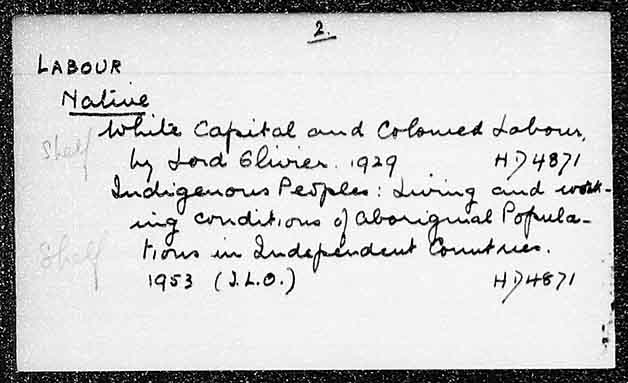 2.
LABOUR
Native
White Capital and Coloured Labour,
Shelf
by Lord Olivier. 1929 HD4871
Indigenous Peoples: Living and work-
ing conditions of aboriginal Popula-
Shelf
tions in Independent Countries.
1953 (I.L.O.) HD4871